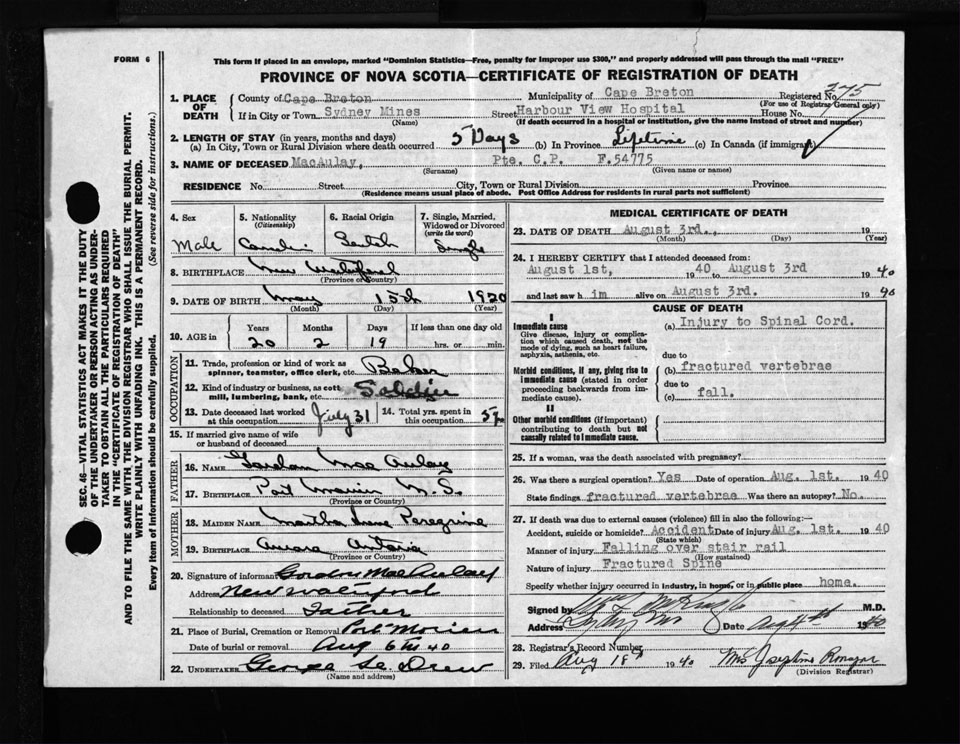 FORM 6
This form if placed in an envelope, marked "Dominion Statistics—Free, penalty for improper use $300," and properly addressed will pass through the mail "FREE"
PROVINCE OF NOVA SCOTIA—CERTIFICATE OF REGISTRATION OF DEATH
SEC. 46—VITAL STATISTICS ACT MAKES IT THE DUTY
OF THE UNDERTAKER OR PERSON ACTING AS UNDER-
TAKER TO OBTAIN ALL THE PARTICULARS REQUIRED
IN THE "CERTIFICATE OF REGISTRATION OF DEATH"
AND TO FILE THE SAME WITH THE DIVISION REGISTRAR WHO SHALL ISSUE THE BURIAL PERMIT.
WRITE PLAINLY WITH UNFADING INK. THIS IS A PERMANENT RECORD.
Every item of information should be carefully supplied. (See reverse side for instructions.)
1. PLACE OF DEATH County of Cape Breton Municipality of Cape Breton Registered No.
(For use of Registrar General only)
If in City or Town Sydney Mines Street Harbour View Hospital House No.
(Name) (If death occurred in a hospital or institution, give the name instead of street and number)
2. LENGTH OF STAY (in years, months and days)
(a) In City, Town or Rural Division where death occurred 5 Days (b) In Province Lifetime (c) In Canada (if immigrant)
3. NAME OF DECEASED MacAulay, Pte. C.P. F.54775
(Surname) (Given name or names)
RESIDENCE No. Street City, Town or Rural Division Province
(Residence means usual place of abode. Post Office Address for residents in rural parts not sufficient)
4. Sex 5. Nationality (Citizenship) 6. Racial Origin 7. Single, Married, Widowed or Divorced (write the word)
Male Scotch Single
8. BIRTHPLACE New Waterford
(Province or Country)
9. DATE OF BIRTH May 15th 1920
(Month) (Day) (Year)
10. AGE in Years Months Days If less than one day old
20 2 19 hrs. or min.
OCCUPATION
11. Trade, profession or kind of work as spinner, teamster, office clerk, etc. Baker
12. Kind of industry or business, as cotton mill, lumbering, bank, etc. Soldier
13. Date deceased last worked at this occupation July 31 14. Total yrs. spent in this occupation
15. If married give name of wife or husband of deceased
FATHER
16. NAME Gordon MacAulay
17. BIRTHPLACE Port Morien N.S.
(Province or Country)
MOTHER
18. MAIDEN NAME Martha Irene Peregrine
19. BIRTHPLACE Aurora Ontario
(Province or Country)
20. Signature of informant Gordon MacAulay
Address New Waterford
Relationship to deceased Father
21. Place of Burial, Cremation or Removal Port Morien
Date of burial or removal Aug 6th 40
22. UNDERTAKER George
(Name and address)
MEDICAL CERTIFICATE OF DEATH
23. DATE OF DEATH August 3rd., 19
(Month) (Day) (Year)
24. I HEREBY CERTIFY that I attended deceased from:
August 1st, 1940 to August 3rd 1940
and last saw him alive on August 3rd. 1940
CAUSE OF DEATH
I
Immediate cause (a) Injury to Spinal Cord.
Give disease, injury or complication which caused death, not the mode of dying, such as heart failure, asphyxia, asthenia, etc.
due to
Morbid conditions, if any, giving rise to immediate cause (stated in order proceeding backwards from immediate cause). (b) fractured vertebrae
due to
(c) fall.
II
Other morbid conditions (if important) contributing to death but not causally related to immediate cause.
25. If a woman, was the death associated with pregnancy?
26. Was there a surgical operation? Yes Date of operation Aug. 1st. 1940
State findings fractured vertebrae Was there an autopsy? No.
27. If death was due to external causes (violence) fill in also the following:—
Accident, suicide or homicide? Accident Date of injury Aug. 1st. 1940
(State which)
Manner of injury Falling over stair rail
(How sustained)
Nature of injury Fractured Spine
Specify whether injury occurred in industry, in home, or in public place home.
Signed by M.D.
Address Date Aug 4th 1940
28. Registrar's Record Number
29. Filed Aug 18th 1940 Mrs Josephine
(Division Registrar)